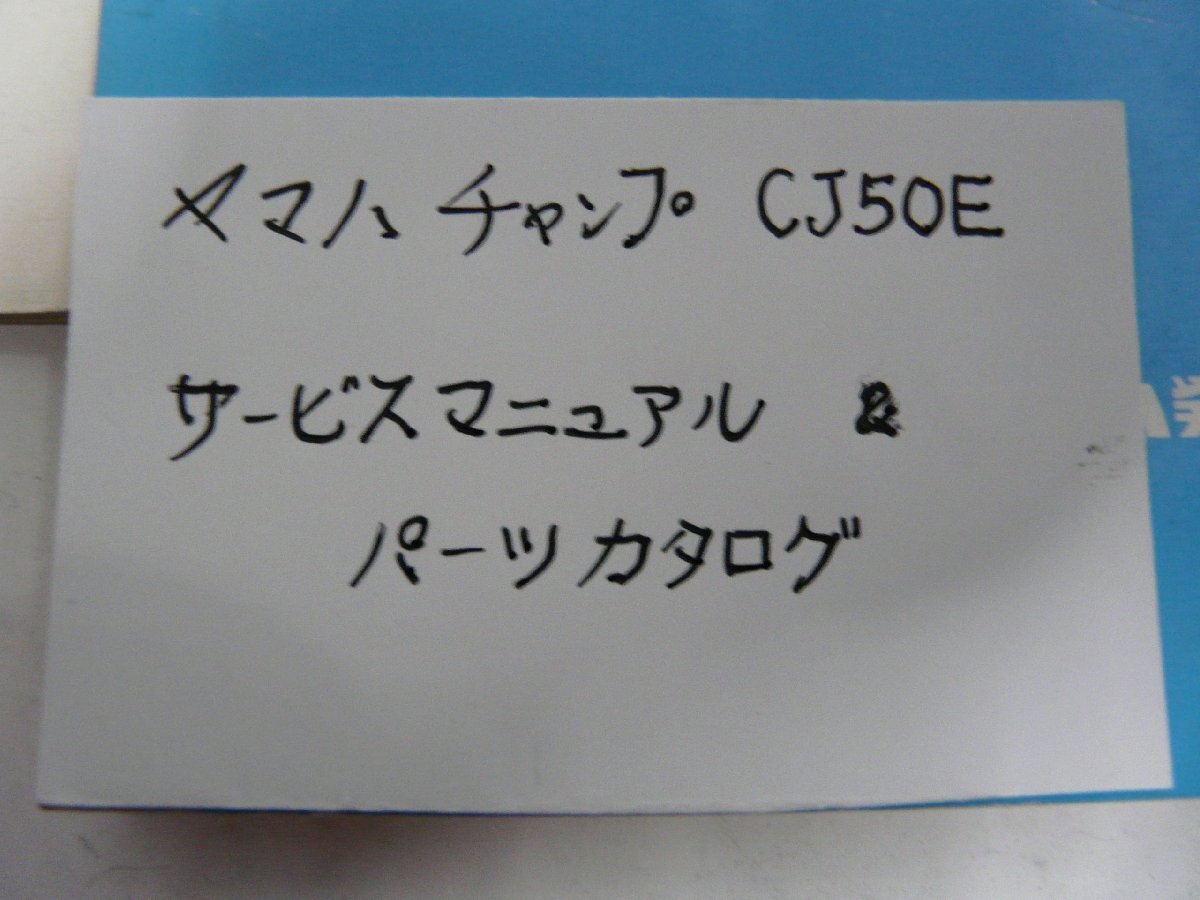 ヤマハ チャンプ CJ50E
サービスマニュアル &
パーツカタログ